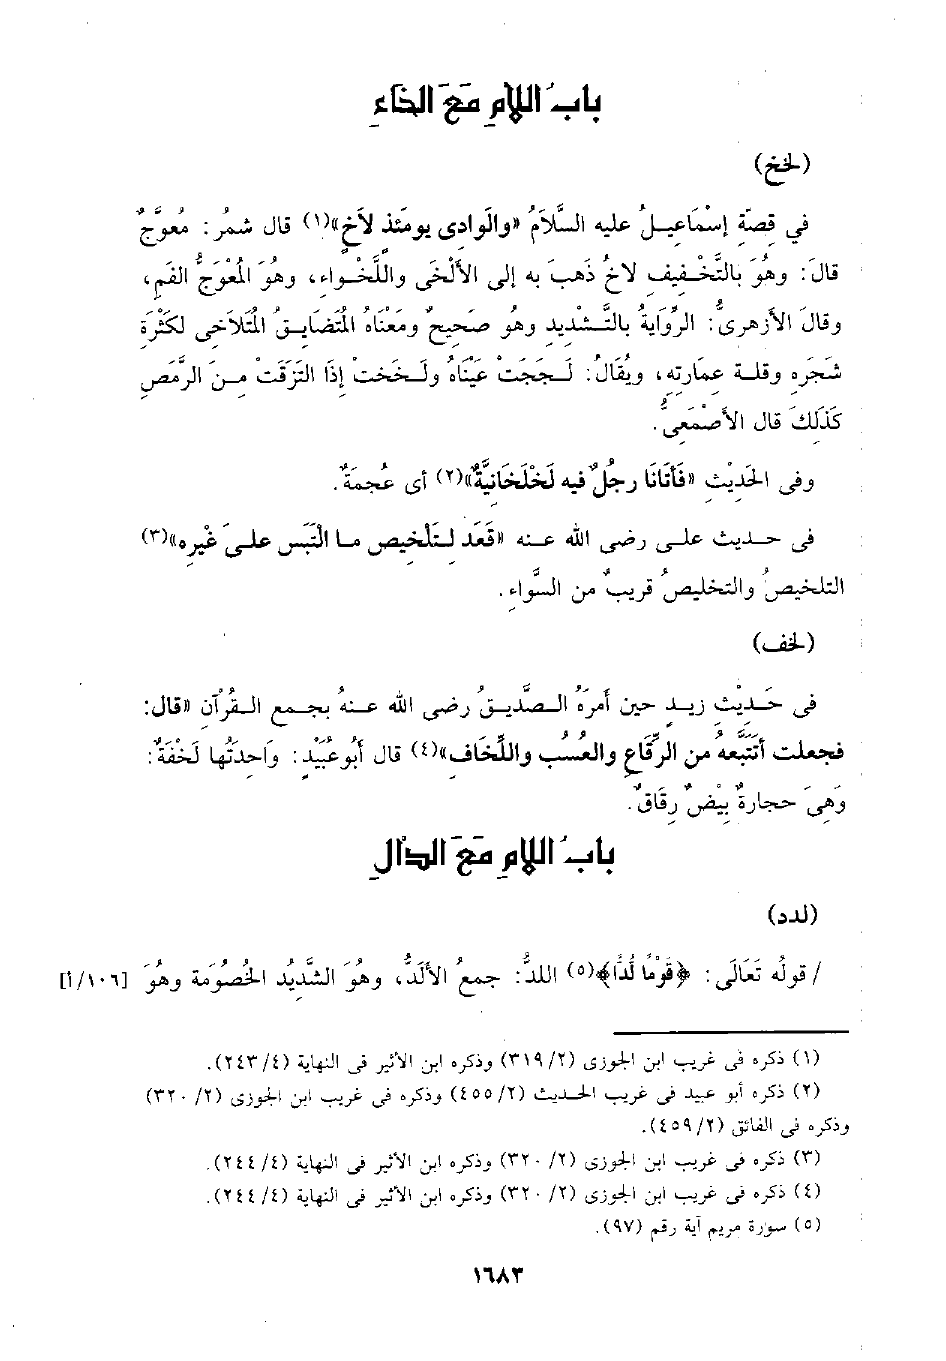 بابُ اللامِ مَعَ الخاءِ
(لخخ)
في قصَّةِ إسْمَاعيلُ عليه السَّلامُ «والَوادِى يومَئذ لاَخٍ»(١) قال شمرُ: مُعوَّجٌ
قالَ: وهُوَ بالتَّخْفيفِ لاخُ ذَهبَ به إلى الألْخَى واللَّخْـواءِ، وهُوَ المُعْوَجُّ الفَمِ،
وقالَ الأزهرىُّ: الرِّوَايةُ بالتَّـشْديدِ وهُو صَحيحٌ ومَعْنَاهُ المُتَضَايقُ المُتَلاَخِى لكَثْرَةِ
شَجَرِهِ وقلـة عِمارتِهِ، ويُقَالُ: لَـحِجَتْ عَيْنَاهُ ولَـخَختْ إذَا التَزَقَتْ مِـنَ الرَّمَصِ
كَذَلِكَ قال الأصْمَعِىُّ.
وفى الحَدِيْثِ «فَأتَانَا رجُلٌ فيه لَخْلَخَانيَّةٌ»(٢) أى عُجمَةٌ.
فى حـديث علـى رضى الله عـنه «قَعَد لـتَلْخِيصِ مـا الْتَبَس علـىَ غَيْرِهِ»(٣)
التلخيصُ والتخليصُ قريبٌ من السَّواءِ.
(لخف)
فى حَـديْثِ زيـدٍ حين أمرَهُ الـصَّديـقُ رضى الله عـنهُ بجـمع الـقُرْآنِ «قال:
فجعلت أتَتَبَّعهُ من الرِّقَاعِ والعُسُب واللِّخَاف»(٤) قال أبُو عُبَيْدٍ: وَاحِدتُها لَخْفَةٌ:
وَهِىَ حجارةٌ بِيْضٌ رِقَاقٌ.
بابُ اللامِ مَعَ الدالِ
(لدد)
/ قولُه تَعَالَى: ﴿قَوْمًا لُدًّا﴾(٥) اللدُّ: جمعُ الألَدُّ، وهُوَ الشَّدِيْدِ الخُصُومَة وهُوَ [١٠٦/أ]
(١) ذكره فى غريب ابن الجوزى (٣١٩/٢) وذكره ابن الأثير فى النهاية (٢٤٣/٤).
(٢) ذكره أبو عبيد فى غريب الحـديث (٤٥٥/٢) وذكره فى غريب ابن الجوزى (٣٢٠/٢)
وذكره فى الفائق (٤٥٩/٢).
(٣) ذكره فى غريب ابن الجوزى (٣٢٠/٢) وذكره ابن الأثير فى النهاية (٢٤٤/٤).
(٤) ذكره فى غريب ابن الجوزى (٣٢٠/٢) وذكره ابن الأثير فى النهاية (٢٤٤/٤).
(٥) سورة مريم آية رقم (٩٧).
١٦٨٣